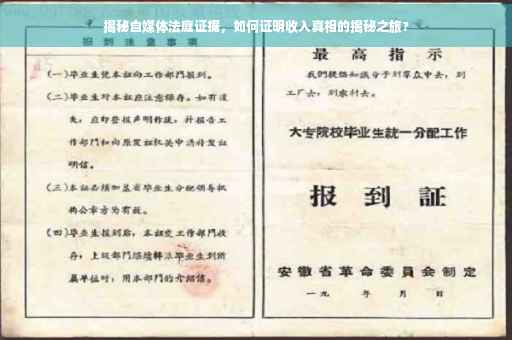 揭秘自媒体法庭证据，如何证明收入真相的揭秘之旅？
报到注意事项
(一)毕业生凭本证向工作部门报到。
(二)毕业生对本证应注意保存。如有遗
失，应即登报声明作废，并报告工
作部门和向原发证机关申请补发证
明信。
(三)本证必须加盖省毕业生分配领导机
构公章方为有效。
(四)毕业生报到后，本证交工作部门收
存；上级部门继续转派毕业生到所
属单位时，用本部门的介绍信。
最高指示
我们提倡知识分子到群众中去，到
工厂去，到农村去。
大专院校毕业生统一分配工作
报到证
安徽省革命委员会制定
一九 年 月 日